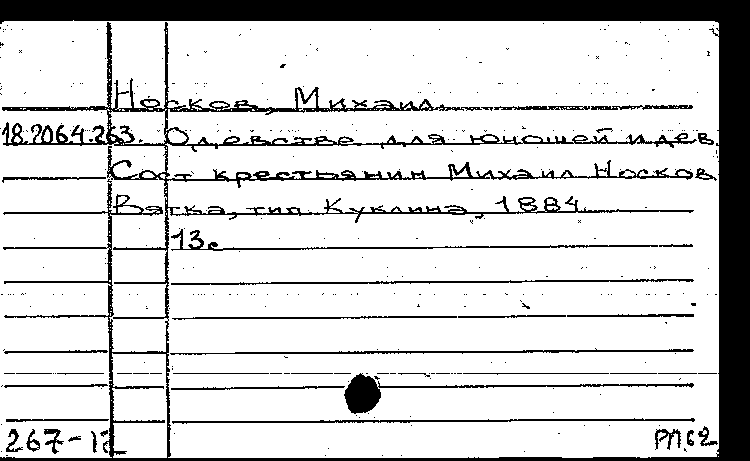 Носков, Михаил.
18.2064.263. О девстве для юношей и дев.
Сост крестьянин Михаил Носков
Вятка, тип Куклина, 1884.
13с
267-12
РП.62